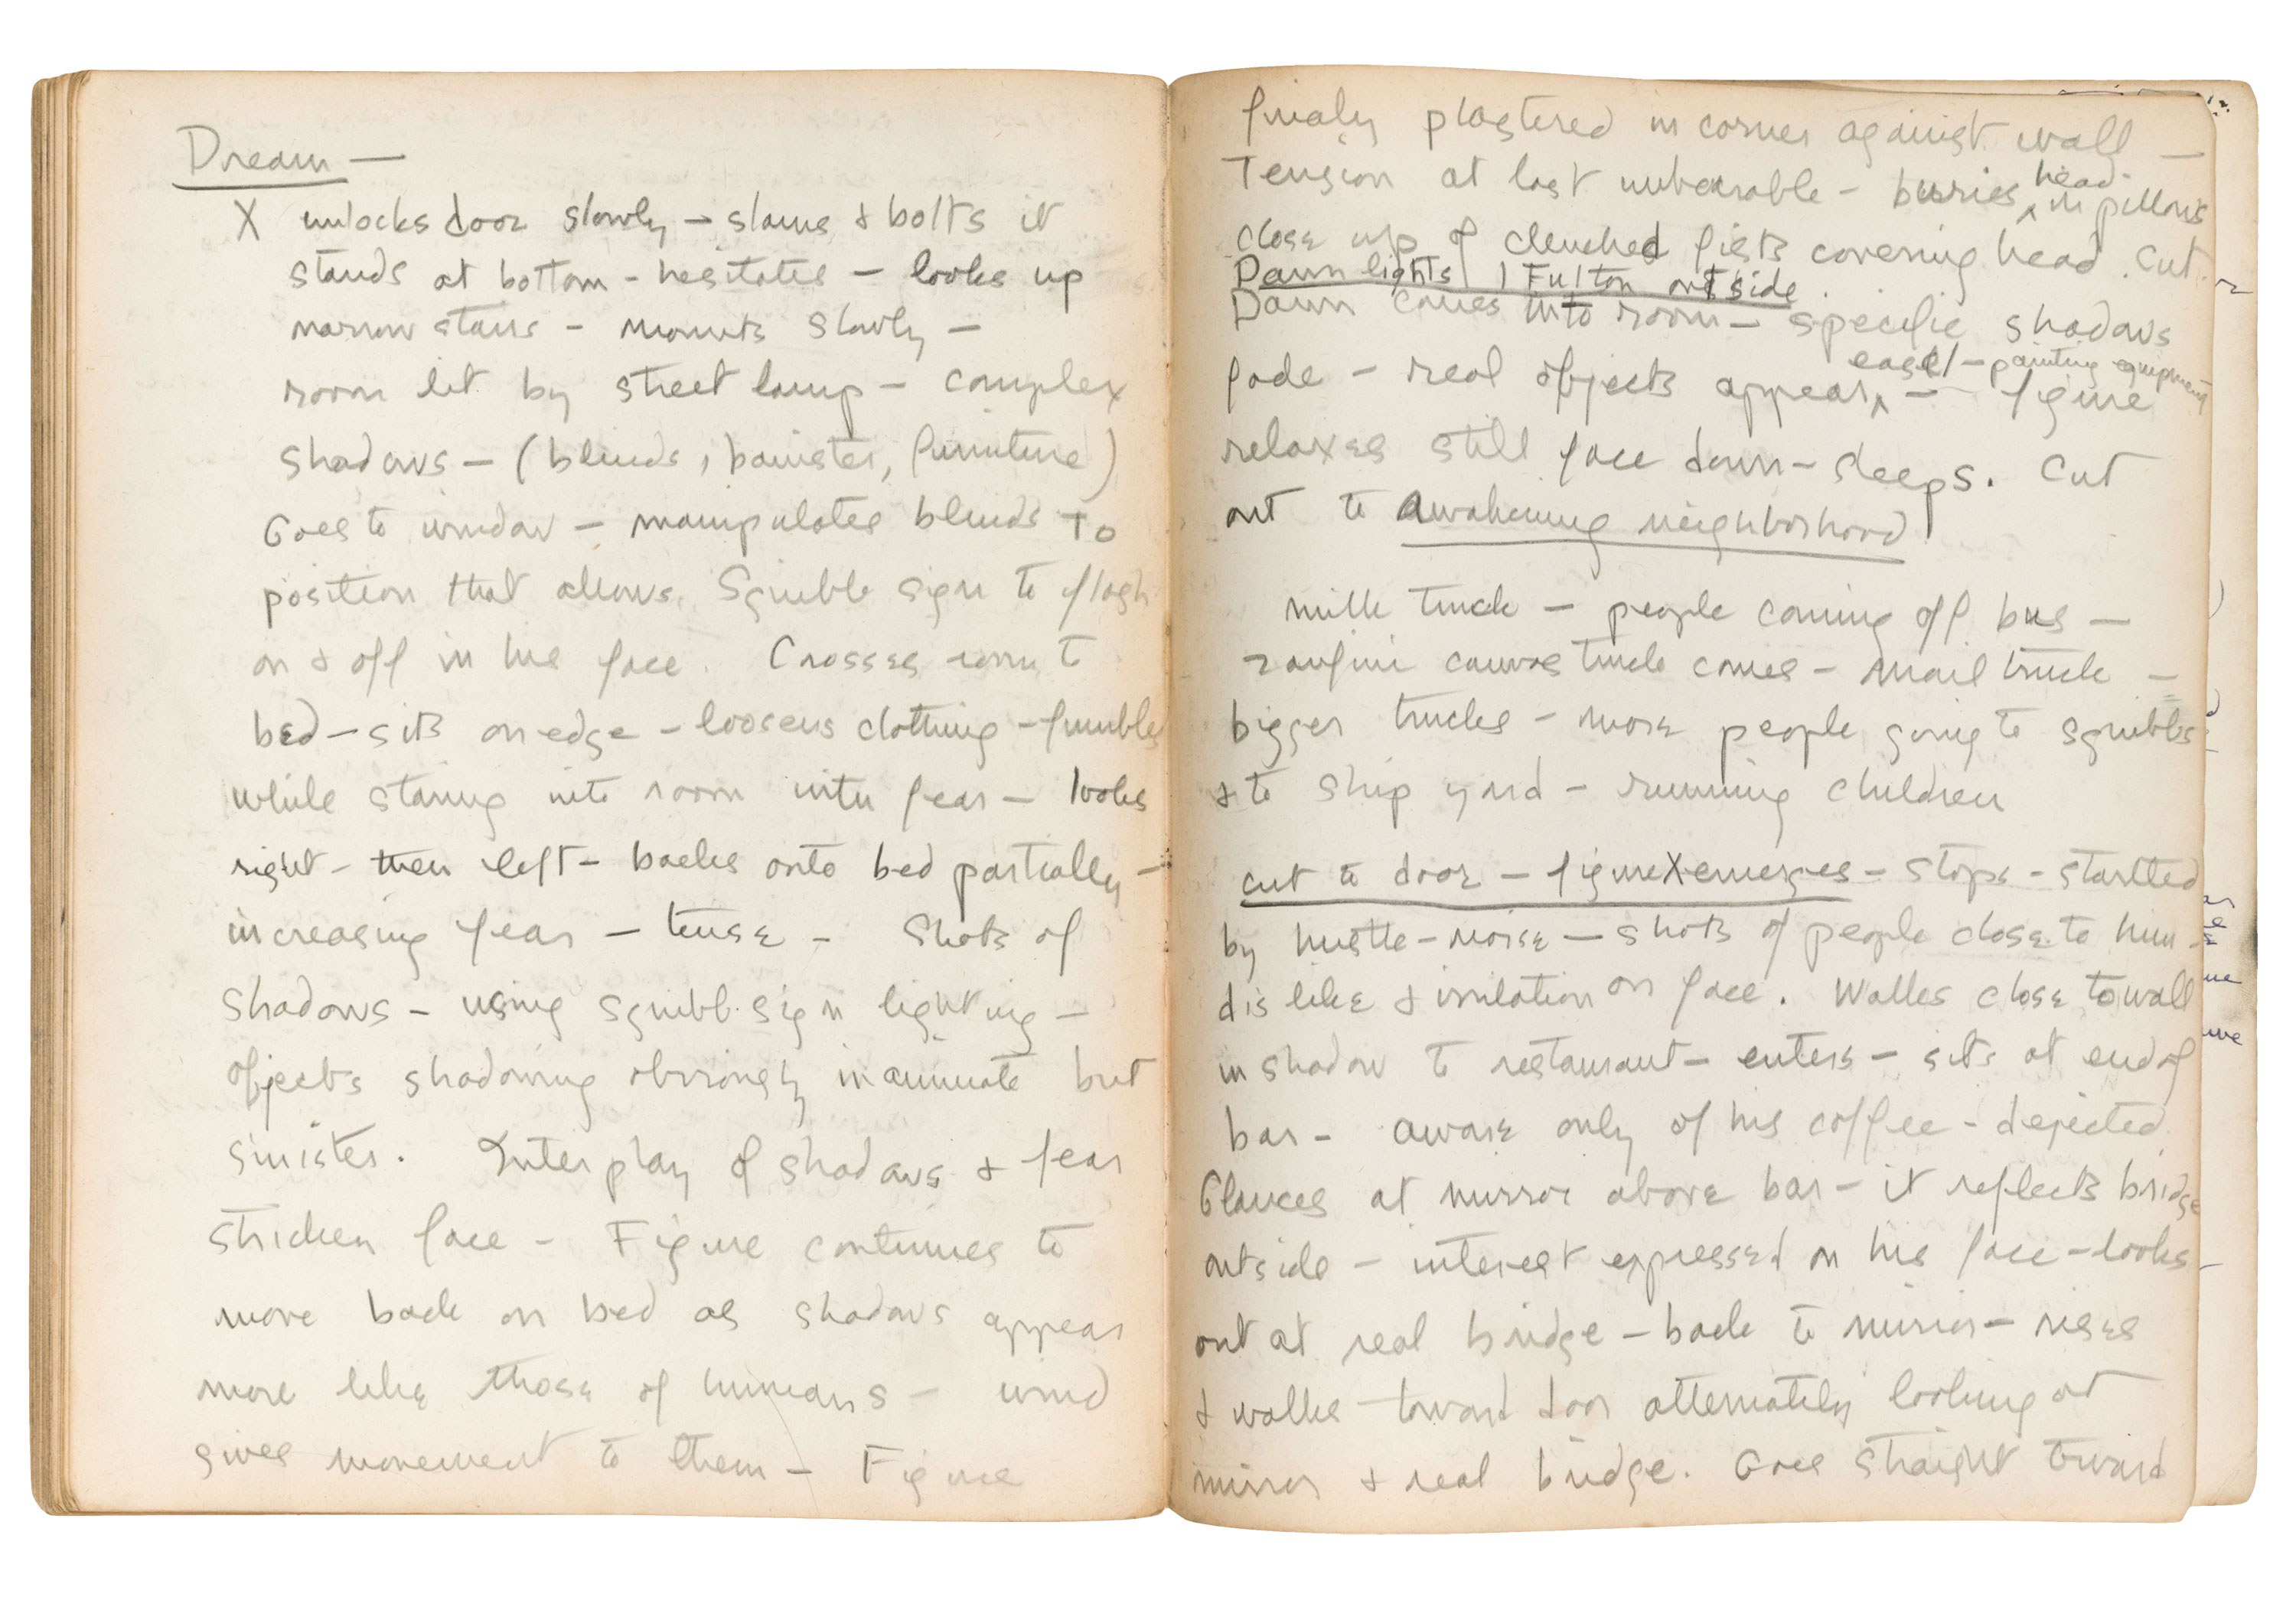 Dream —
X unlocks door slowly – slams & bolts it
stands at bottom – hesitates – looks up
narrow stairs – mounts slowly –
room lit by street lamp – complex
shadows – (blinds, banister, furniture)
Goes to window – manipulates blinds to
position that allows Squibb sign to flash
on & off in his face. Crosses room to
bed – sits on edge – loosens clothing – fumbles
while staring into room with fear – looks
right – then left – backs onto bed partially –
increasing fear – tense – Shots of
shadows – using squibb sign lighting –
objects shadowing obviously inanimate but
sinister. Interplay of shadows & fear
stricken face – Figure continues to
move back on bed as shadows appear
more like those of humans – wind
gives movement to them – Figure
finaly plastered in corner against wall –
Tension at last unbearable – buries head in pillows
close up of clenched fists covering head. Cut
Dawn lights 1 Fulton outside.
Dawn comes into room – specific shadows
fade – real objects appear easel – painting equipment – figure
relaxes still face down – sleeps. Cut
out to Awakening neighborhood
milk truck – people coming off bus –
canvas truck comes – mail truck –
bigger trucks – more people going to squibbs
& to ship yard – running children
cut to door – figure X emerges – stops – startled
by hustle – noise – shots of people close to him –
dislike & irritation on face. Walks close to wall
in shadow to restaurant – enters – sits at end of
bar – aware only of his coffee – dejected.
Glances at mirror above bar – it reflects bridge
outside – interest expressed on his face – looks
out at real bridge – back to mirror – rises
& walks toward door alternately looking at
mirror & real bridge. Goes straight toward